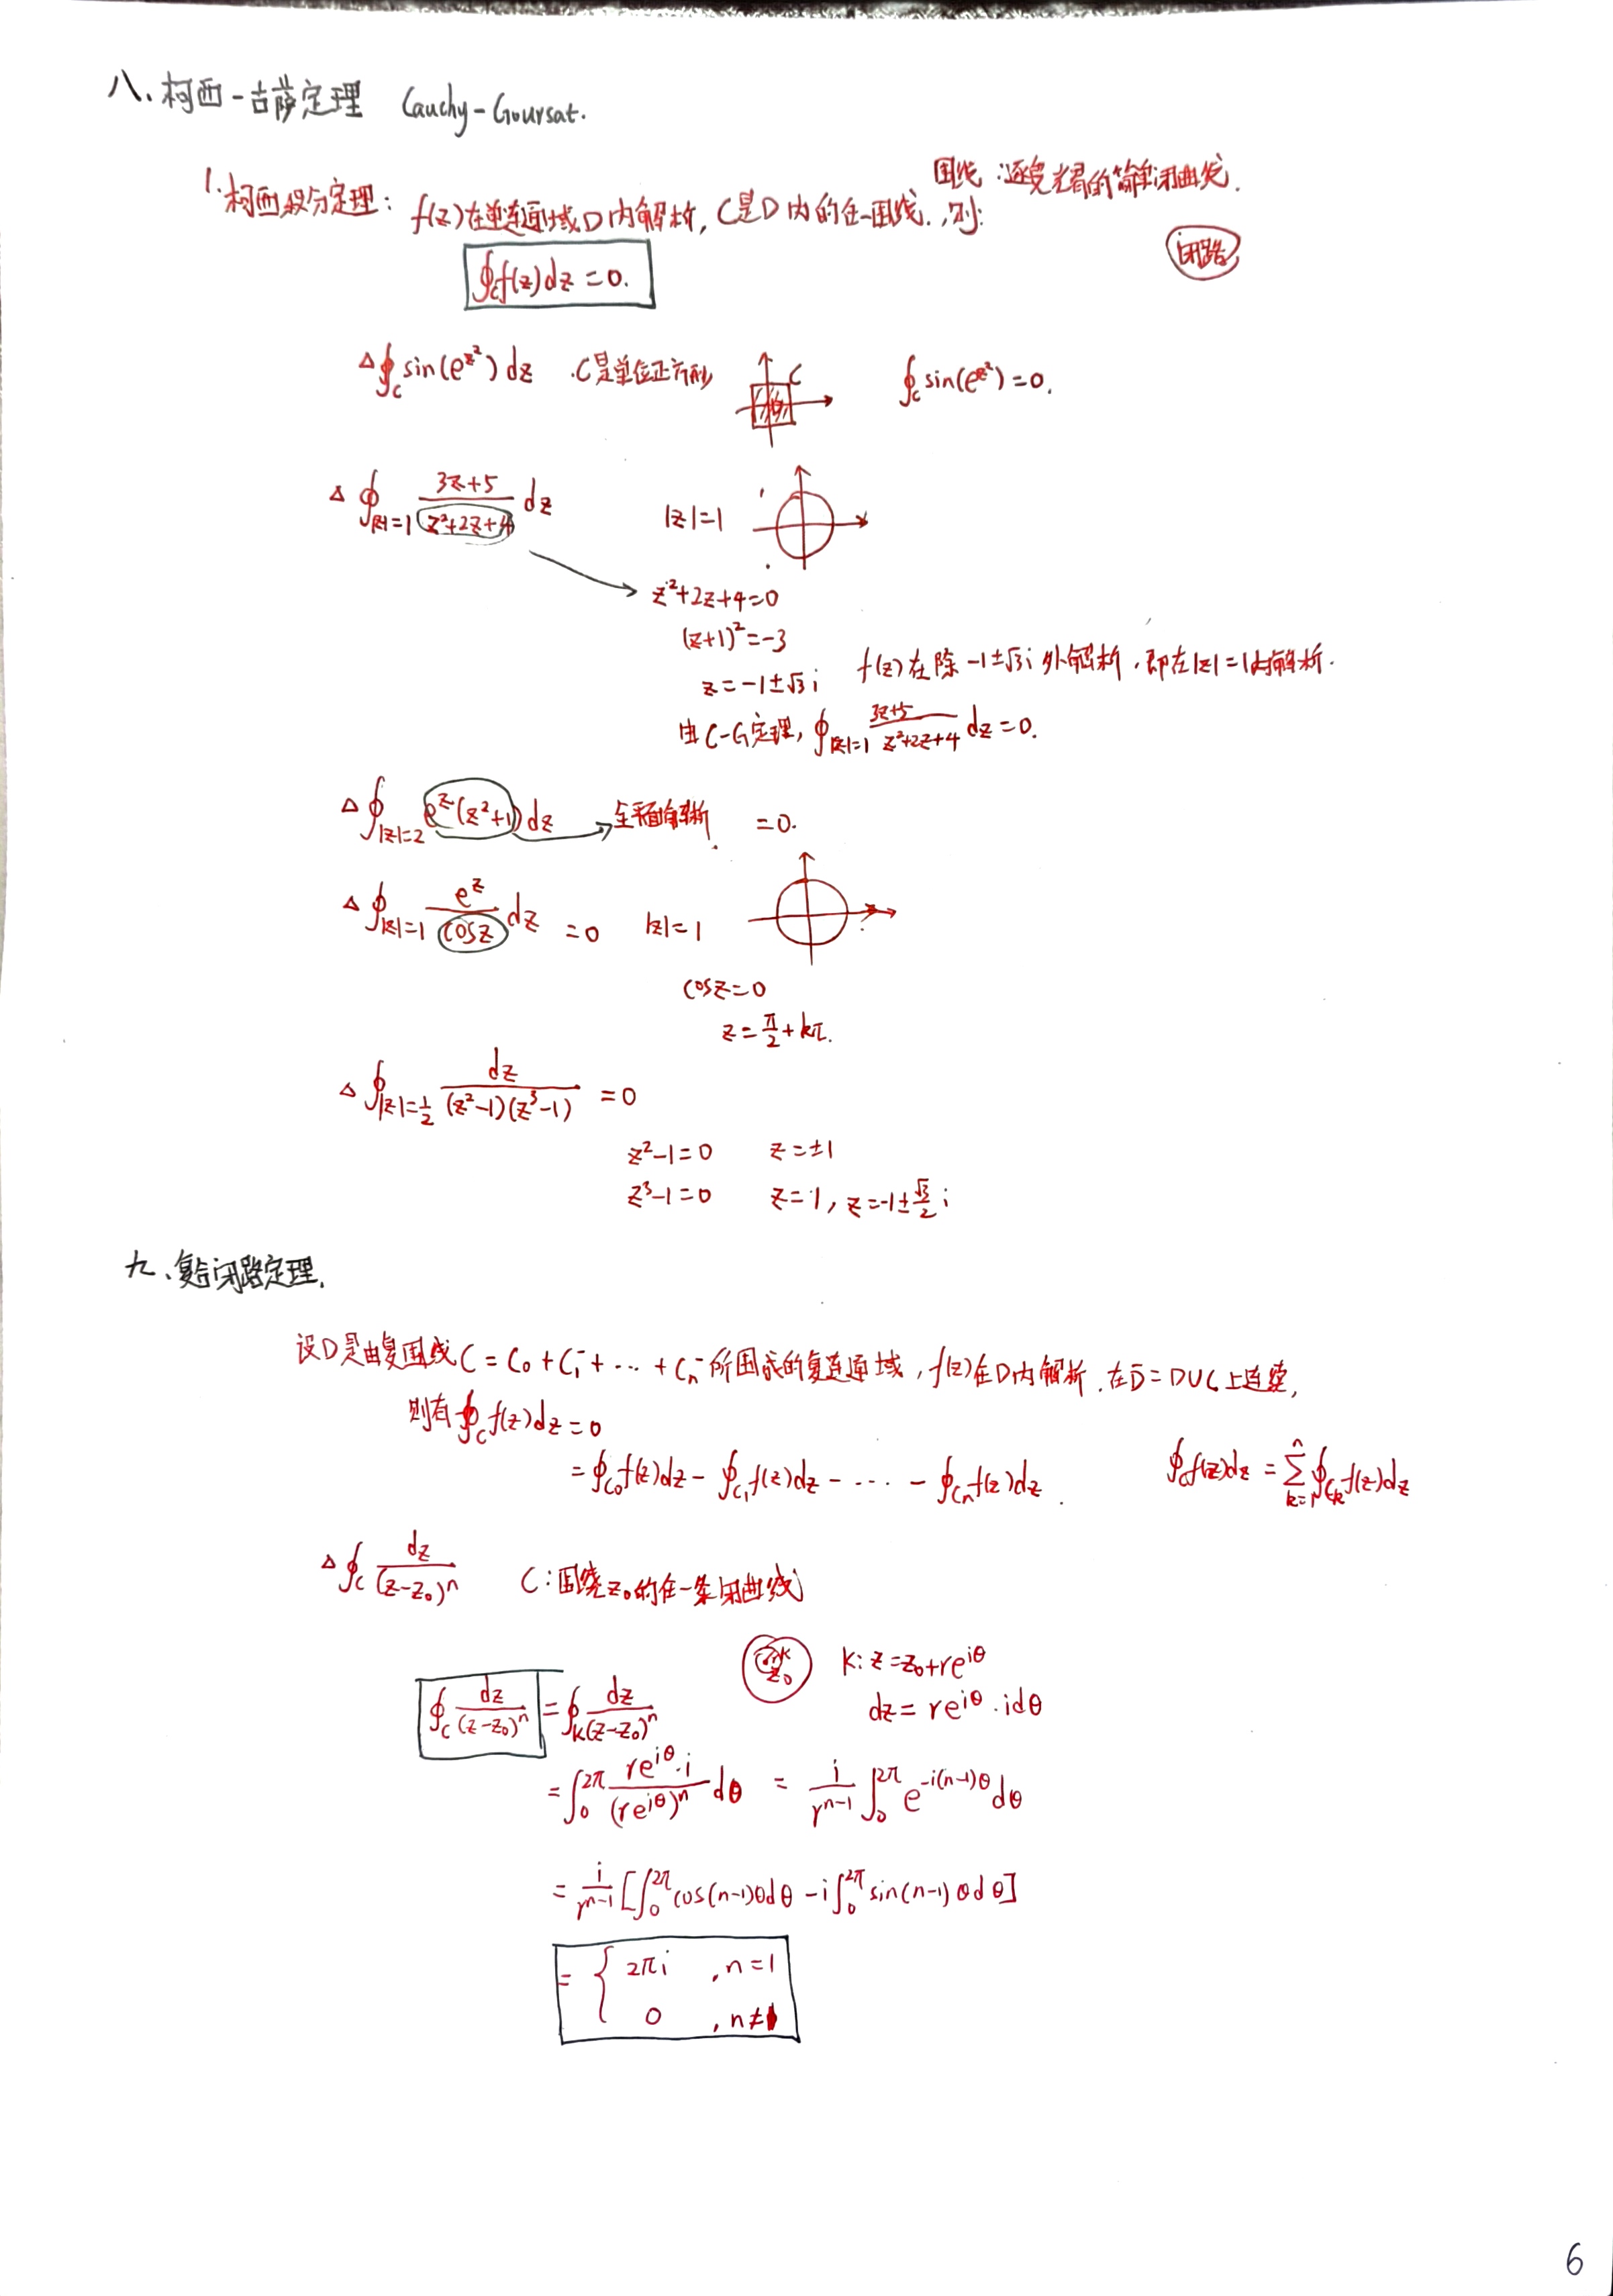 八、柯西-古萨定理 Cauchy-Goursat.
围线:逐段光滑的简单闭曲线.
1.柯西积分定理: f(z)在单连通域D内解析, C是D内的任一围线.,则:
闭路
∮_C f(z)dz=0.
△ ∮_C sin(e^{z²})dz .C是单位正方形 C ∮_C sin(e^{z²})=0.
△ ∮_{|z|=1} (3z+5)/(z²+2z+4) dz |z|=1
z²+2z+4=0
(z+1)²=-3
z=-1±√3 i f(z)在除-1±√3 i外解析,即在|z|=1内解析.
由C-G定理, ∮_{|z|=1} (3z+5)/(z²+2z+4) dz=0.
△ ∮_{|z|=2} e^z(z²+1)dz 全平面解析 =0.
△ ∮_{|z|=1} e^z/cosz dz =0 |z|=1
cosz=0
z=π/2+kπ.
△ ∮_{|z|=1/2} dz/((z²-1)(z³-1)) =0
z²-1=0 z=±1
z³-1=0 z=1, z=-1±√3/2 i
九、复合闭路定理.
设D是由复围线C=C₀+C₁⁻+…+Cₙ⁻所围成的复连通域,f(z)在D内解析.在D̄=D∪C上连续,
则有∮_C f(z)dz=0
=∮_{C₀}f(z)dz-∮_{C₁}f(z)dz-…-∮_{Cₙ}f(z)dz. ∮_C f(z)dz=∑_{k=1}^{n}∮_{C_k}f(z)dz
△ ∮_C dz/(z-z₀)ⁿ C:围绕z₀的任一条闭曲线
K z₀ K: z=z₀+re^{iθ}
dz=re^{iθ}·idθ
∮_C dz/(z-z₀)ⁿ=∮_K dz/(z-z₀)ⁿ
=∫₀^{2π} re^{iθ}·i/(re^{iθ})ⁿ dθ = i/r^{n-1} ∫₀^{2π} e^{-i(n-1)θ}dθ
=i/r^{n-1}[∫₀^{2π}cos(n-1)θdθ-i∫₀^{2π}sin(n-1)θdθ]
={ 2πi ,n=1
0 ,n≠1
6